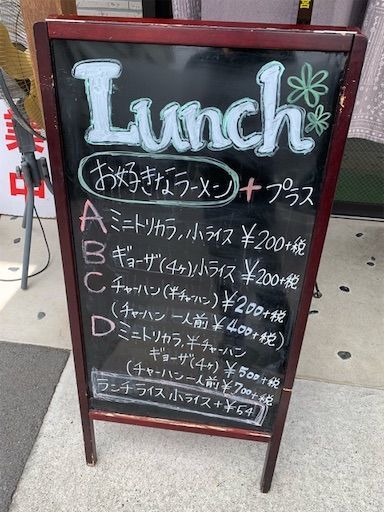 Lunch
お好きなラーメン + プラス
A ミニトリカラ, 小ライス ¥200+税
B ギョーザ(4ヶ)小ライス ¥200+税
C チャーハン(半チャーハン) ¥200+税
(チャーハン 一人前 ¥400+税)
D ミニトリカラ,半チャーハン
ギョーザ(4ヶ) ¥500+税
(チャーハン一人前 ¥700+税
ランチライス 小ライス + ¥54
業中